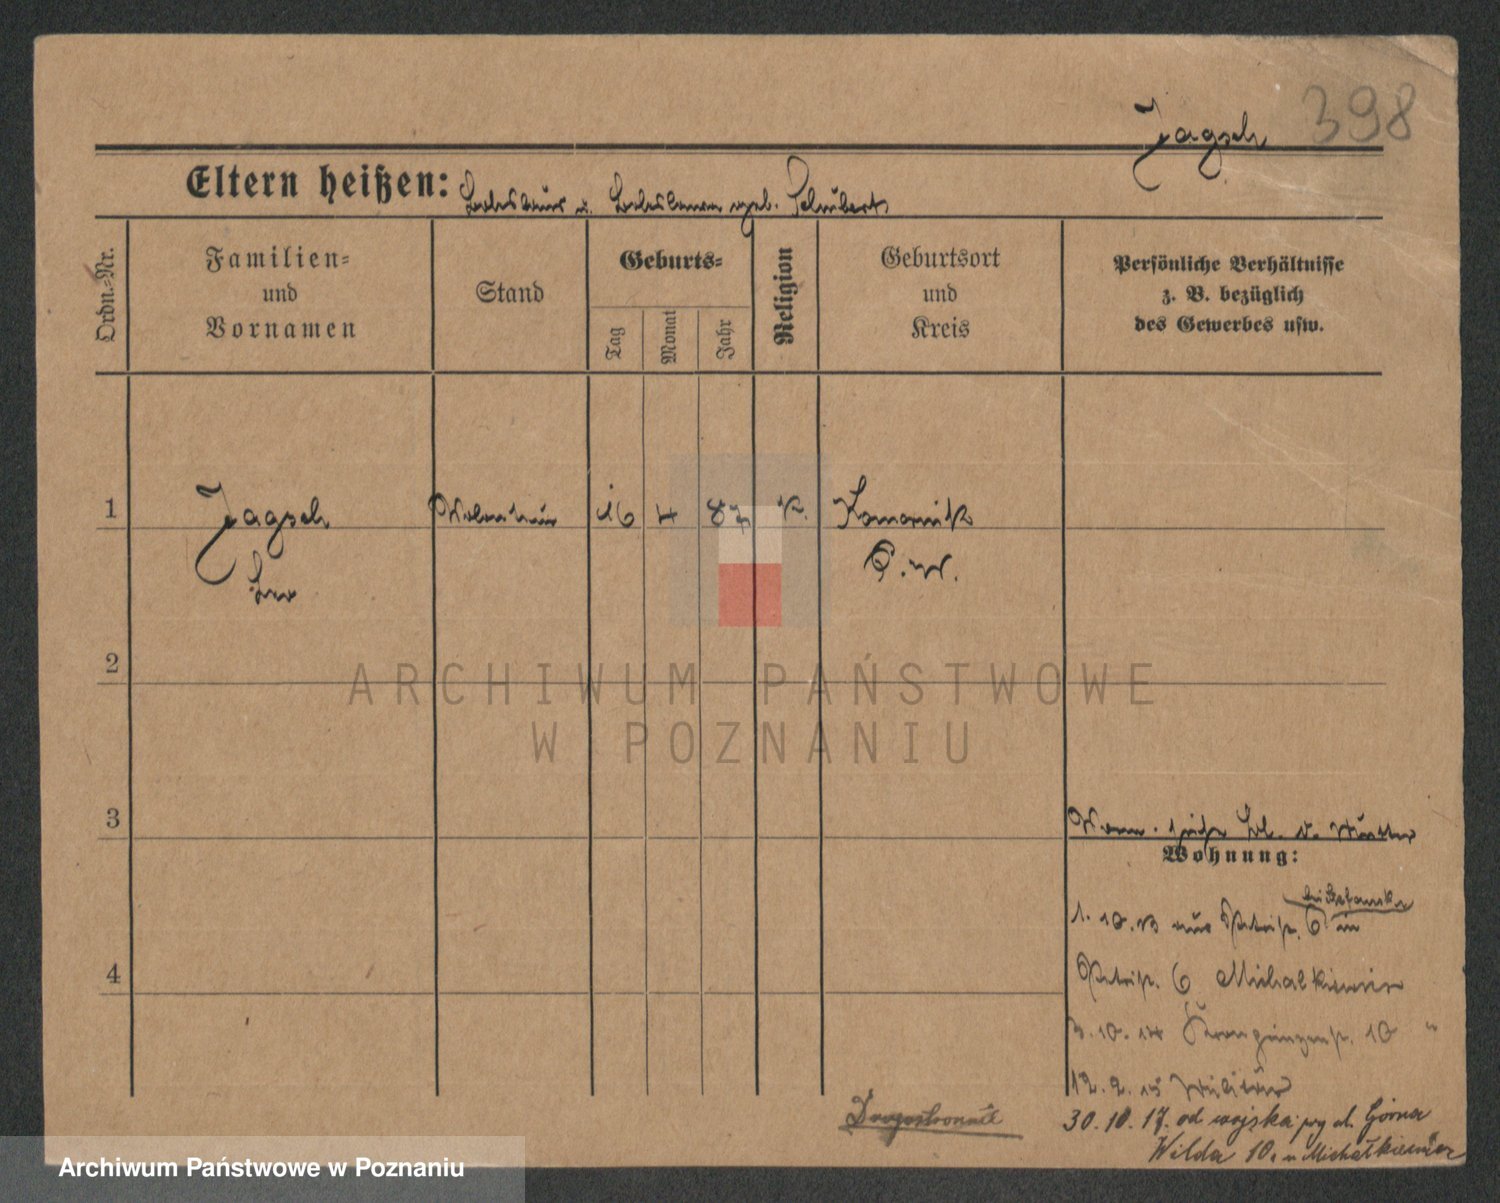 398
Jagsch
Eltern heißen:
u. geb. Schubert
Ordn.-Nr.
Familien-
und
Vornamen
Stand
Geburts-
Tag
Monat
Jahr
Religion
Geburtsort
und
Kreis
Persönliche Verhältnisse
z. B. bezüglich
des Gewerbes usw.
1
Jagsch
Leo
16 4 87 K.
Komornik
P. W.
2
ARCHIWUM PAŃSTWOWE
W POZNANIU
3
Wohnung:
1. 10. 13 aus 6 in
4
6 Michalkiewicz
3. 10. 14 Kronprinzenstr. 10 "
12. 2. 15 Militär
30. 10. 17. od wojska przy ul. Górna
Wilda 10 u Michałkiewicz
Archiwum Państwowe w Poznaniu